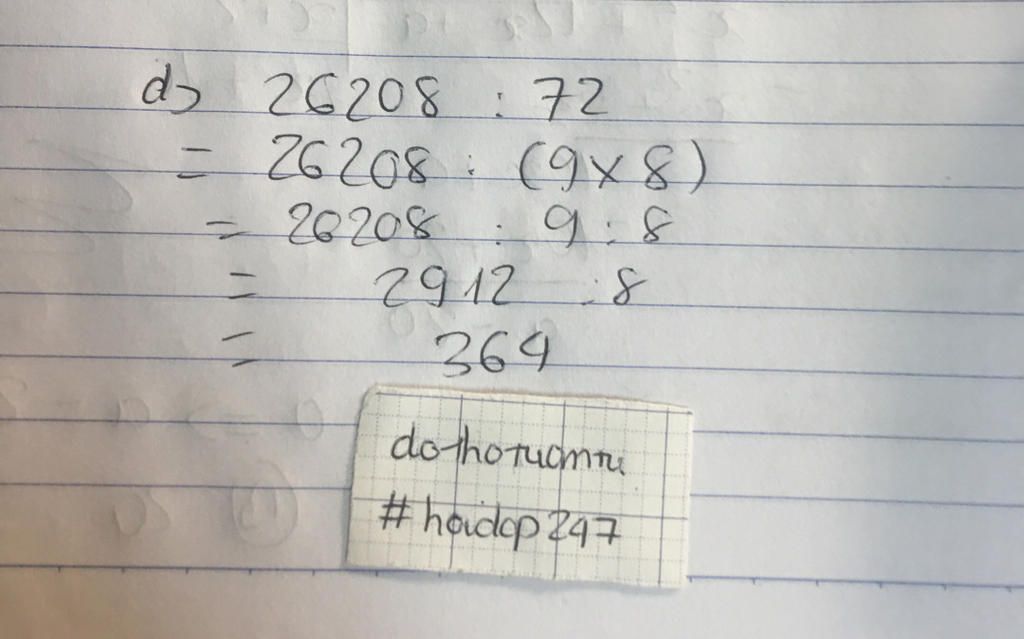 d) 26208 : 72
= 26208 : (9 x 8)
= 26208 : 9 : 8
= 2912 : 8
= 364
#hoidap247